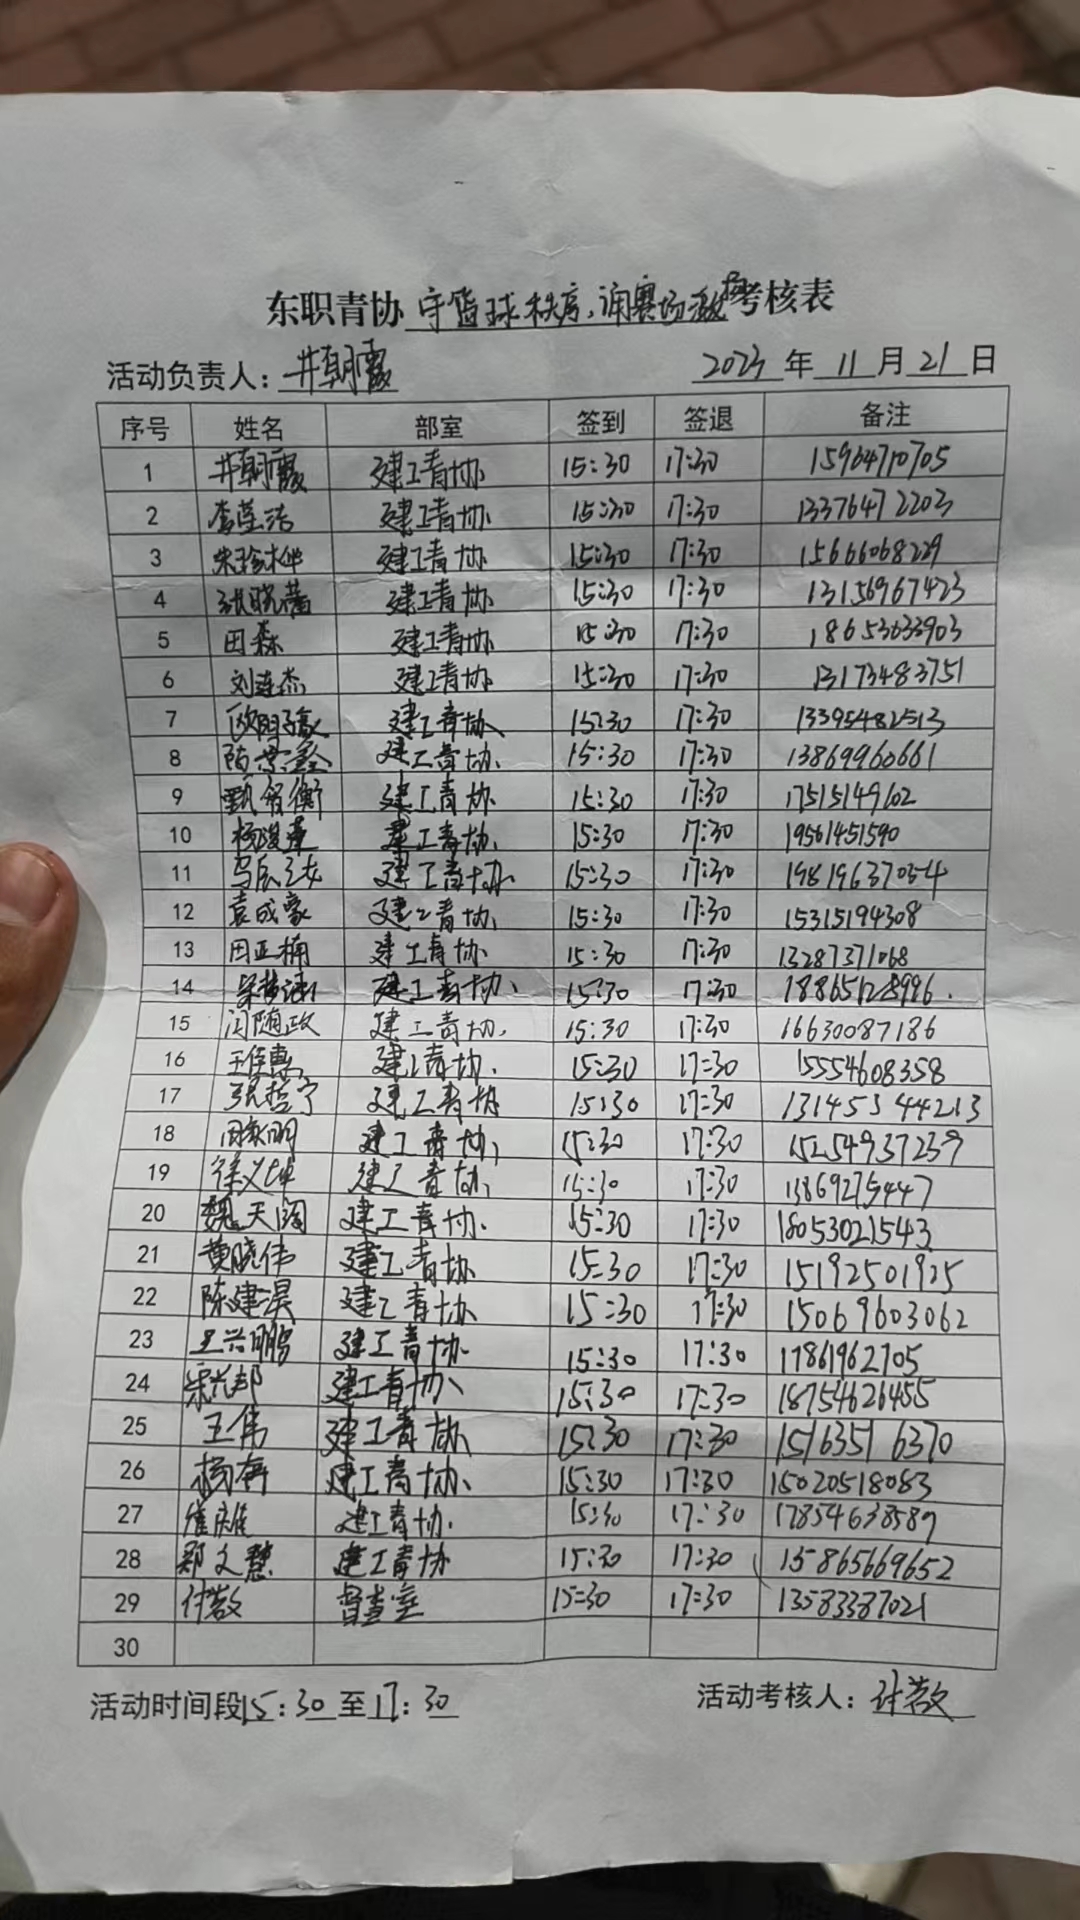 东职青协守篮球秩序,润赛场激情考核表
活动负责人:井朝霞 2023年11月21日
序号 姓名 部室 签到 签退 备注
1 井朝霞 建工青协 15:30 17:30 15964710705
2 李莹洁 建工青协 15:30 17:30 13376472203
3 宋珍桦 建工青协 15:30 17:30 15666068229
4 张晓蕾 建工青协 15:30 17:30 13156967423
5 田森 建工青协 15:30 17:30 18653633903
6 刘连杰 建工青协 15:30 17:30 13173483751
7 欧阳子豪 建工青协 15:30 17:30 13395482513
8 陈景鑫 建工青协 15:30 17:30 13869960661
9 甄智衡 建工青协 15:30 17:30 17515149602
10 杨浚莲 建工青协 15:30 17:30 19561451590
11 建工青协 15:30 17:30 19819637054
12 袁成豪 建工青协 15:30 17:30 15315194308
13 田正楠 建工青协 15:30 17:30 13287371068
14 建工青协 15:30 17:30 18865128996
15 闫随政 建工青协 15:30 17:30 16630087186
16 王佳惠 建工青协 15:30 17:30 15554608358
17 张哲宁 建工青协 15:30 17:30 13145344213
18 建工青协 15:30 17:30 15254937239
19 徐义坤 建工青协 15:30 17:30 13869275447
20 魏天阔 建工青协 15:30 17:30 18053021543
21 黄晓伟 建工青协 15:30 17:30 15192501925
22 陈建淏 建工青协 15:30 17:30 15069603062
23 王兴鹏 建工青协 15:30 17:30 17861962705
24 宋兴邦 建工青协 15:30 17:30 18754626455
25 王伟 建工青协 15:30 17:30 15163516370
26 杨冉 建工青协 15:30 17:30 15020518083
27 崔雎 建工青协 15:30 17:30 17854638589
28 郑文慧 建工青协 15:30 17:30 15865669652
29 付蔷 督查室 15:30 17:30 13583387021
30
活动时间段15:30至17:30 活动考核人: